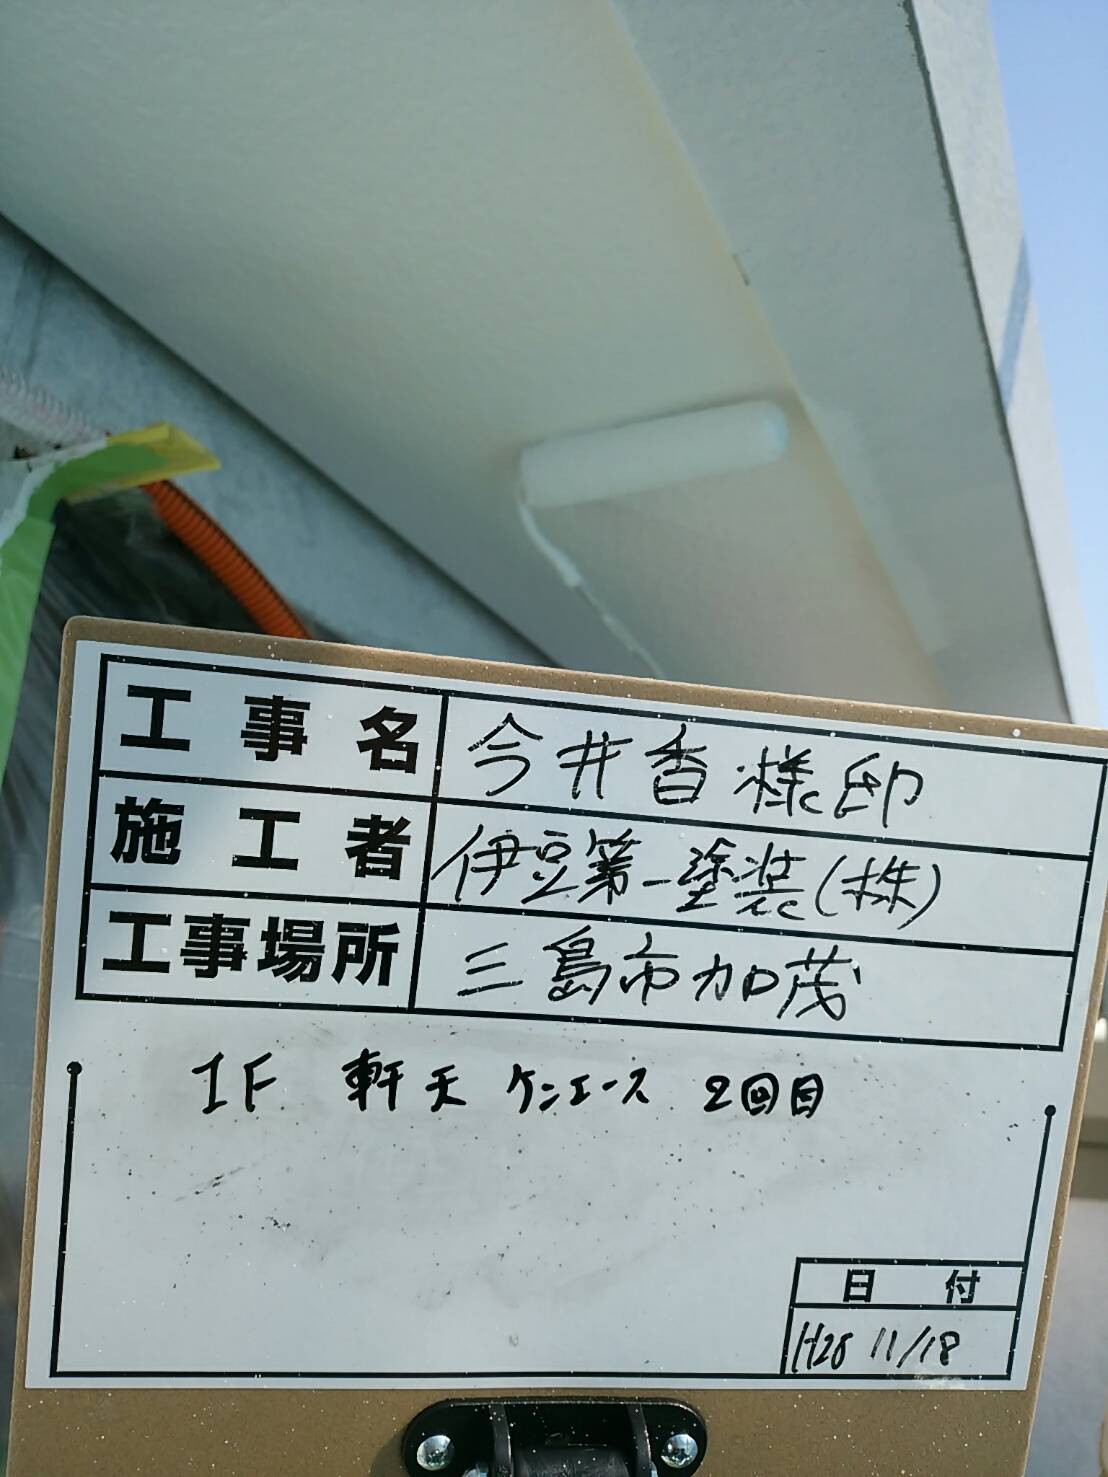 工事名 今井香様邸
施工者 伊豆第一塗装(株)
工事場所 三島市加茂
1F 軒天 ケンエース 2回目
日付
H28 11/18